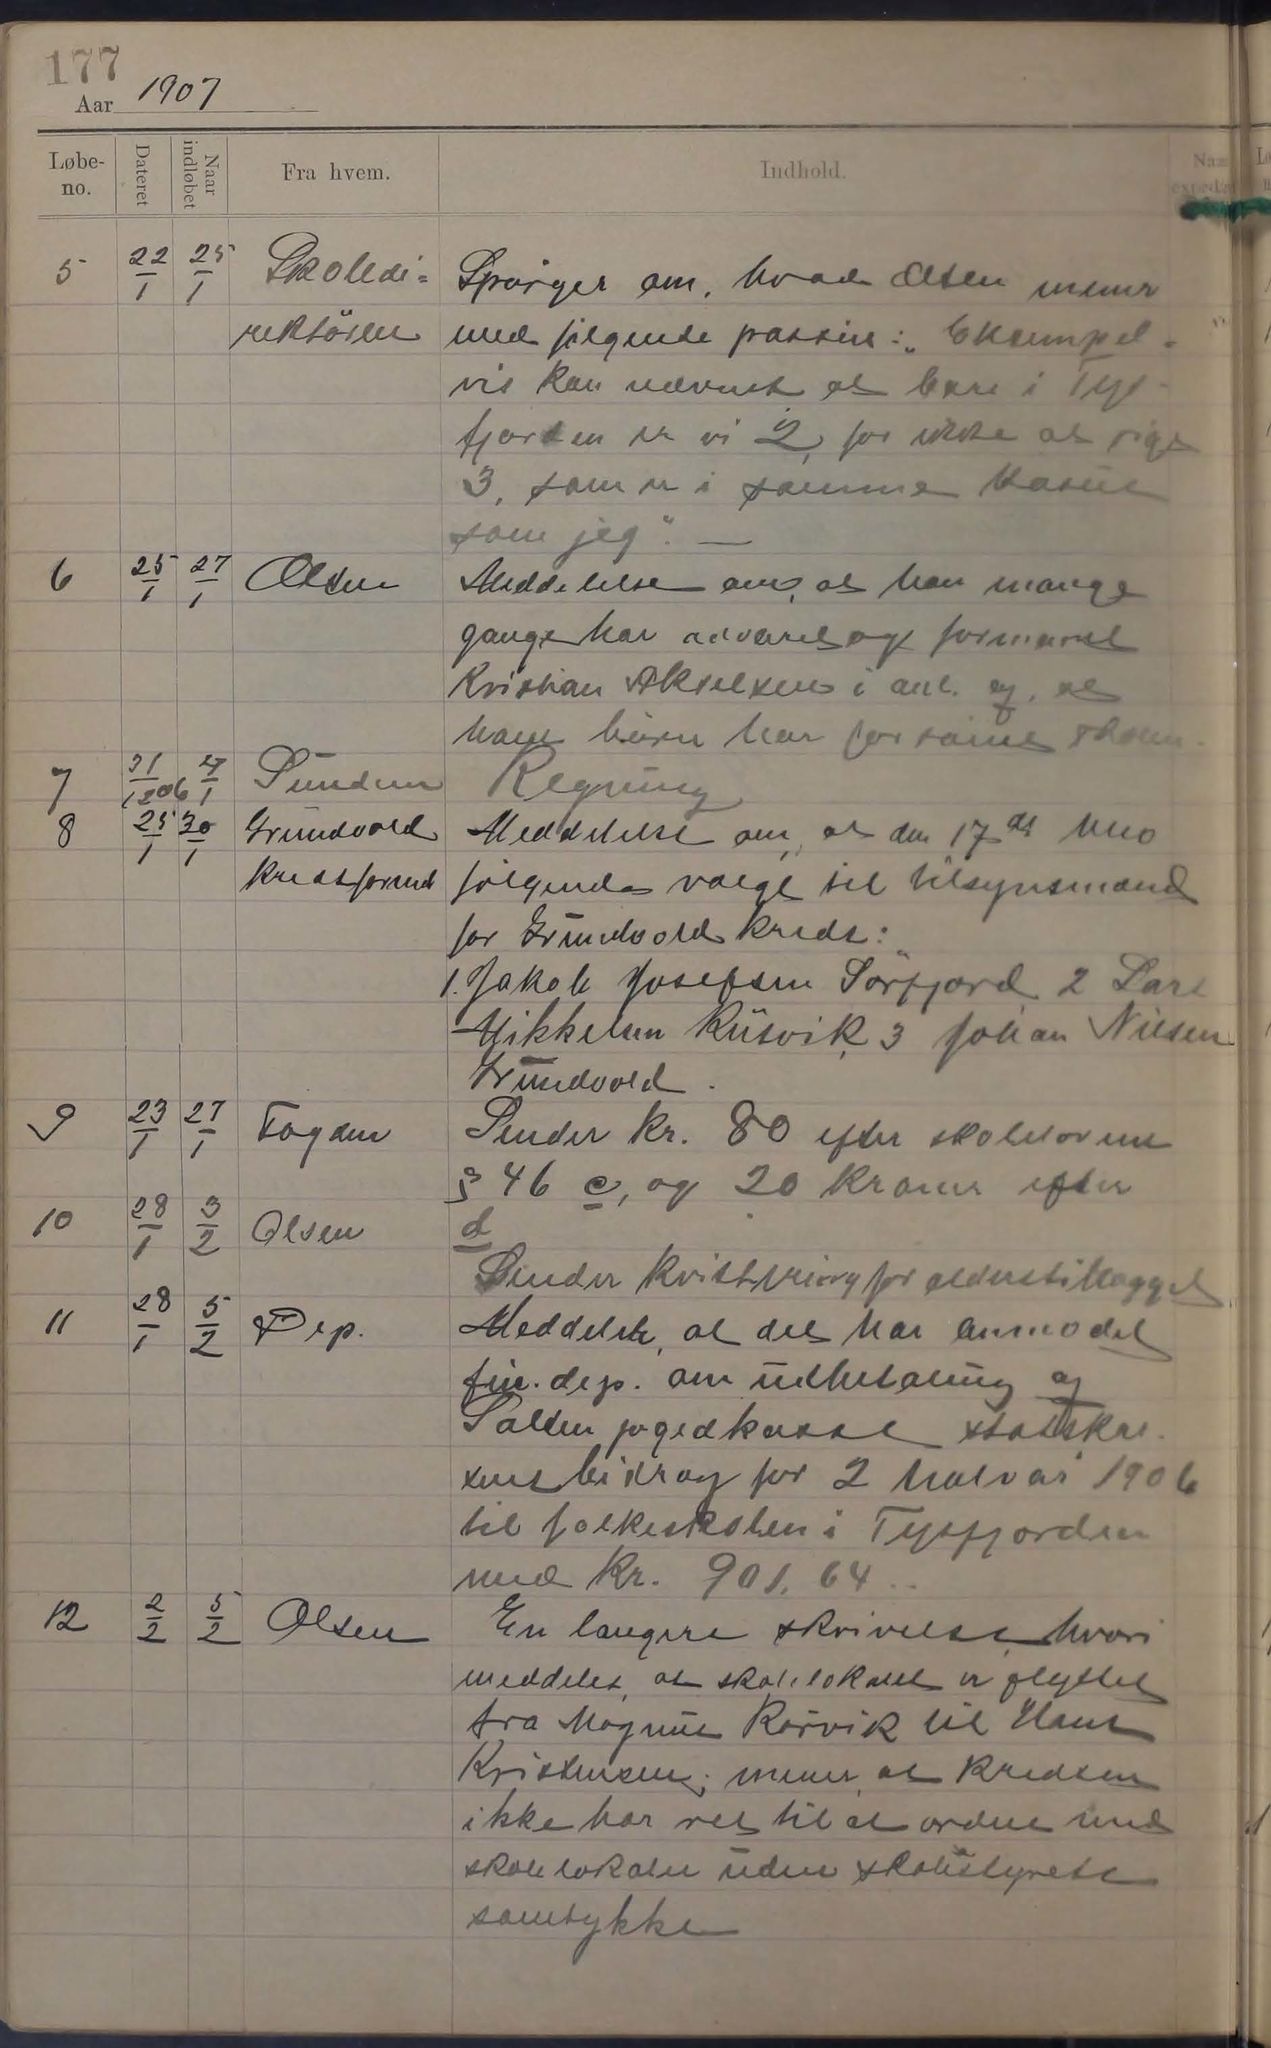 177
Aar 1907
Løbe-no. Dateret Naar indløbet Fra hvem. Indhold.
5 22/1 25/1 Skoledi= Spørger om, hvad Olsen mener
rektøren med følgende passus: „Eksempel-
vis kan nævnes at bare i Tys-
fjorden er vi 2, for ikke at sige
3, som er i samme kasus
som jeg". —
6 25/1 27/1 Olsen Meddelelse om, at han mange
gange har advaret og formanet
Kristian Akselsen i anl. af, at
hans børn har forsømt skolen.
7 31/12 06 4/1 Sunden Regning
8 25/1 30/1 Grundvold Meddelelse om, at den 17de blev
kredsforend følgende valgt til tilsynsmænd
for Grundvold kreds:
1. Jakob Josefsen Sørfjord 2 Lars
Mikkelsen Kusvik, 3 Johan Nilsen
Grundvold.
9 23/1 27/1 Fogden Sender kr. 80 efter skolelovens
§ 46 c, og 20 kroner efter
d
10 28/1 3/2 Olsen
Sender kvittering for alderstillægget
11 28/1 5/2 Dep. Meddeler, at det har anmodet
fin. dep. om udbetaling af
Salten fogedkasse statskas-
sens bidrag for 2 halvår 1906
til folkeskolen i Tysfjorden
med kr. 901.64..
12 2/2 5/2 Olsen En længere skrivelse, hvori
meddeles, at skolelokalet er flyttet
fra Magnus Korvik til Hans
Kristensen; mener at kredsen
ikke har ret til at ordne med
skolelokaler uden skolestyrets
samtykke